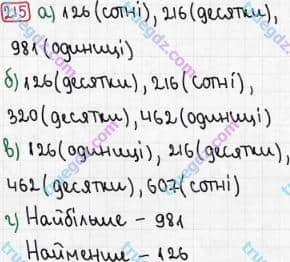 215 а) 126 (сотні), 216 (десятки),
981 (одиниці)
б) 126 (десятки), 216 (сотні),
320 (десятки), 462 (одиниці)
в) 126 (одиниці), 216 (десятки),
462 (десятки), 607 (сотні)
г) Найбільше - 981
Найменше - 126